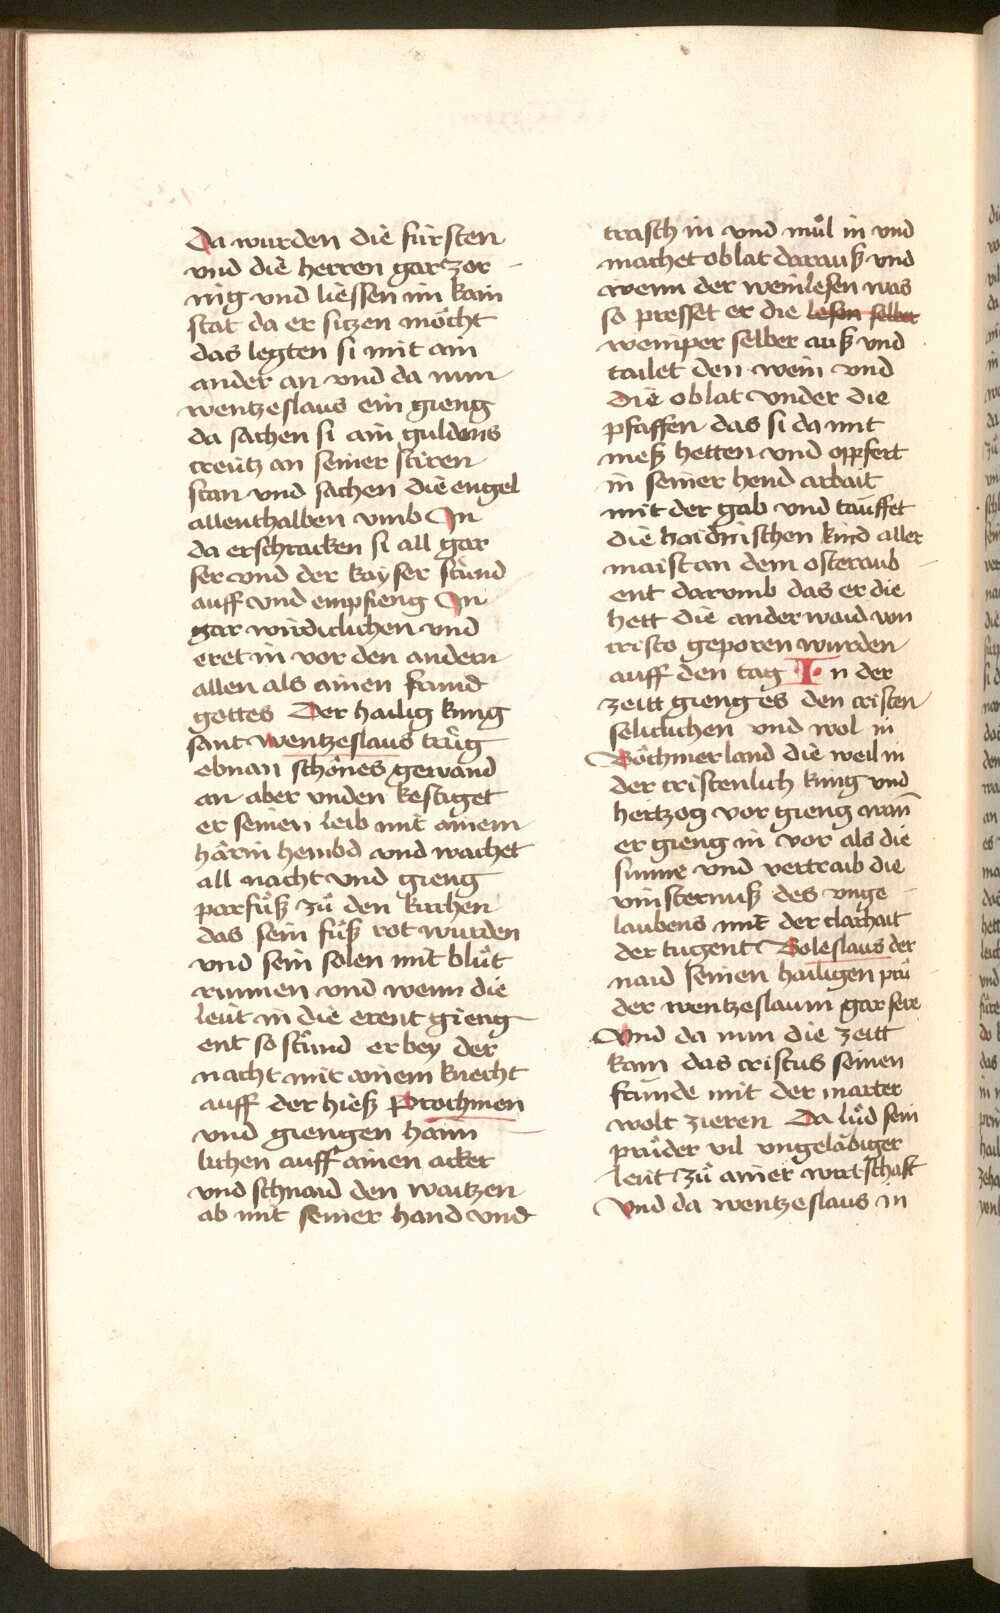 Da wurden die fürsten
vnd die herren gar zor
nig vnd liessen im kain
stat da er sitzen möcht
das legten si mit ain
ander an vnd da nun
wentzeslaus ein gieng
da sachen si ain guldens
creütz an seiner stiren
stan vnd sachen die engel
allenthalben vmb In
da erschracken si all gar
ser vnd der kayser stůnd
auff vnd empfieng In
gar wirdiclichen vnd
eret in vor den andern
allen als ainen frund
gottes Der hailig kung
sant wentzeslaus trůg
ebnan schönes gewand
an aber vnden kestiget
er seinen leib mit ainem
härin hembd vnd wachet
all nacht vnd gieng
parfůß zů den kirchen
das sein fůß rot wurden
vnd sein solen mit blůt
runnen vnd wenn die
leüt in die erent gieng
ent so stůnd er bey der
nacht mit ainem knecht
auff der hieß Prochmen
vnd giengen haim
lichen auff ainen acker
vnd schnaid den waitzen
ab mit seiner hand vnd
trasch in vnd můl in vnd
machet oblat darauß vnd
wenn der weinlesen was
so presset er die lesen selber
wemper selber auß vnd
tailet den wein vnd
die oblat vnder die
pfaffen das si da mit
meß hetten vnd opfert
in seiner hend arbait
mit der gab vnd tauffet
die haidnischen kind aller
maist an dem osteraub
ent darumb das er die
hett die anderwaid von
cristo geporen wurden
auff den tag In der
zeitt gieng es den cristen
seliclichen vnd wol in
Böchmerland die weil in
der cristenlich kung vnd
hertzog vor gieng nam̄
er gieng in vor als die
sunne vnd vertraib die
vinsternuß des vnge
laubens mit der clarhait
der tugent Boleslaus der
naid seinen hailigen prů
der wentzeslaum gar sere
Vnd da nun die zeitt
kam das cristus seinen
frunde mit der marter
wolt zieren Da lůd sein
průder vil vngelädiger
leüt zů ainer wirtschaft
Vnd da wentzeslaus in